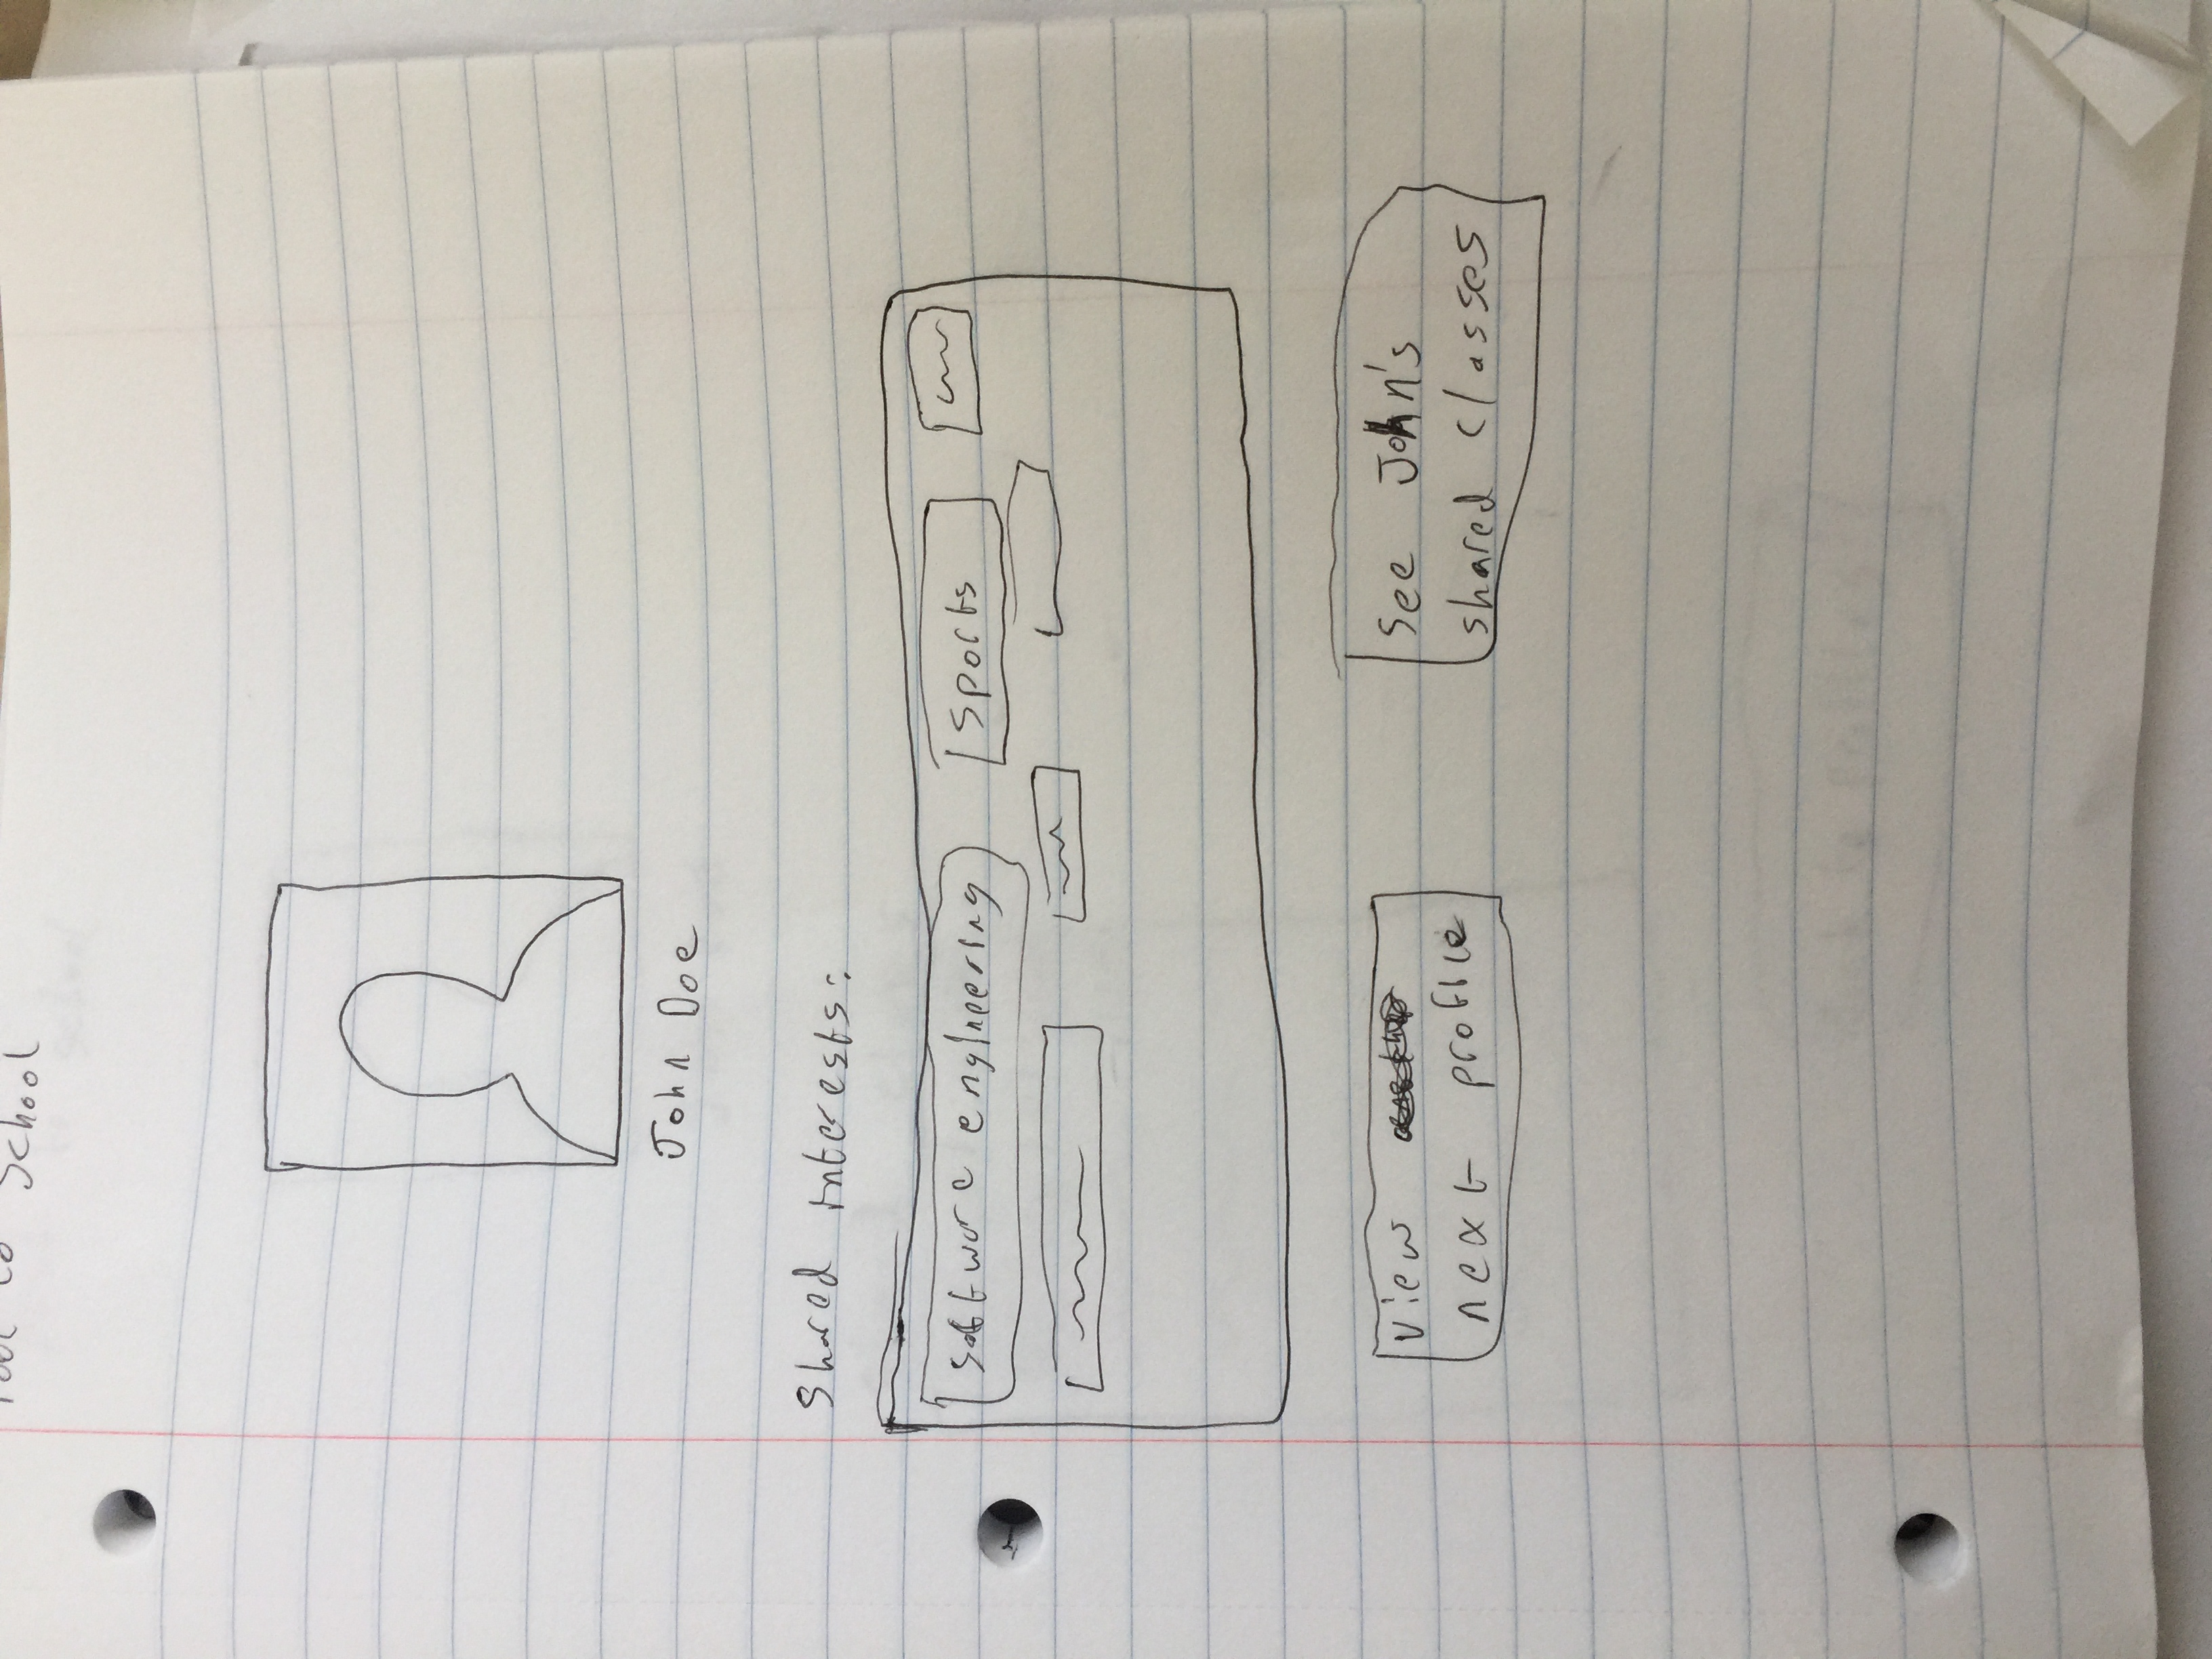 to School
John Doe
Shared interests:
Software engineering
Sports
View
next profile
See John's
shared classes